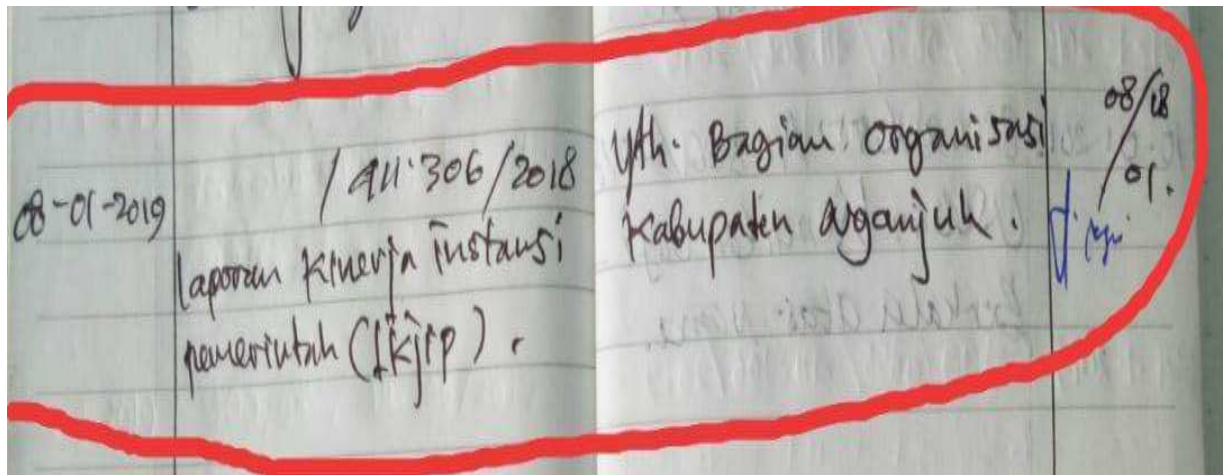 08-01-2019
/ 411.306/2018
laporan kinerja instansi
pemerintah (LKjIP).
Yth. Bagian Organisasi
Kabupaten Nganjuk.
08/18
01.